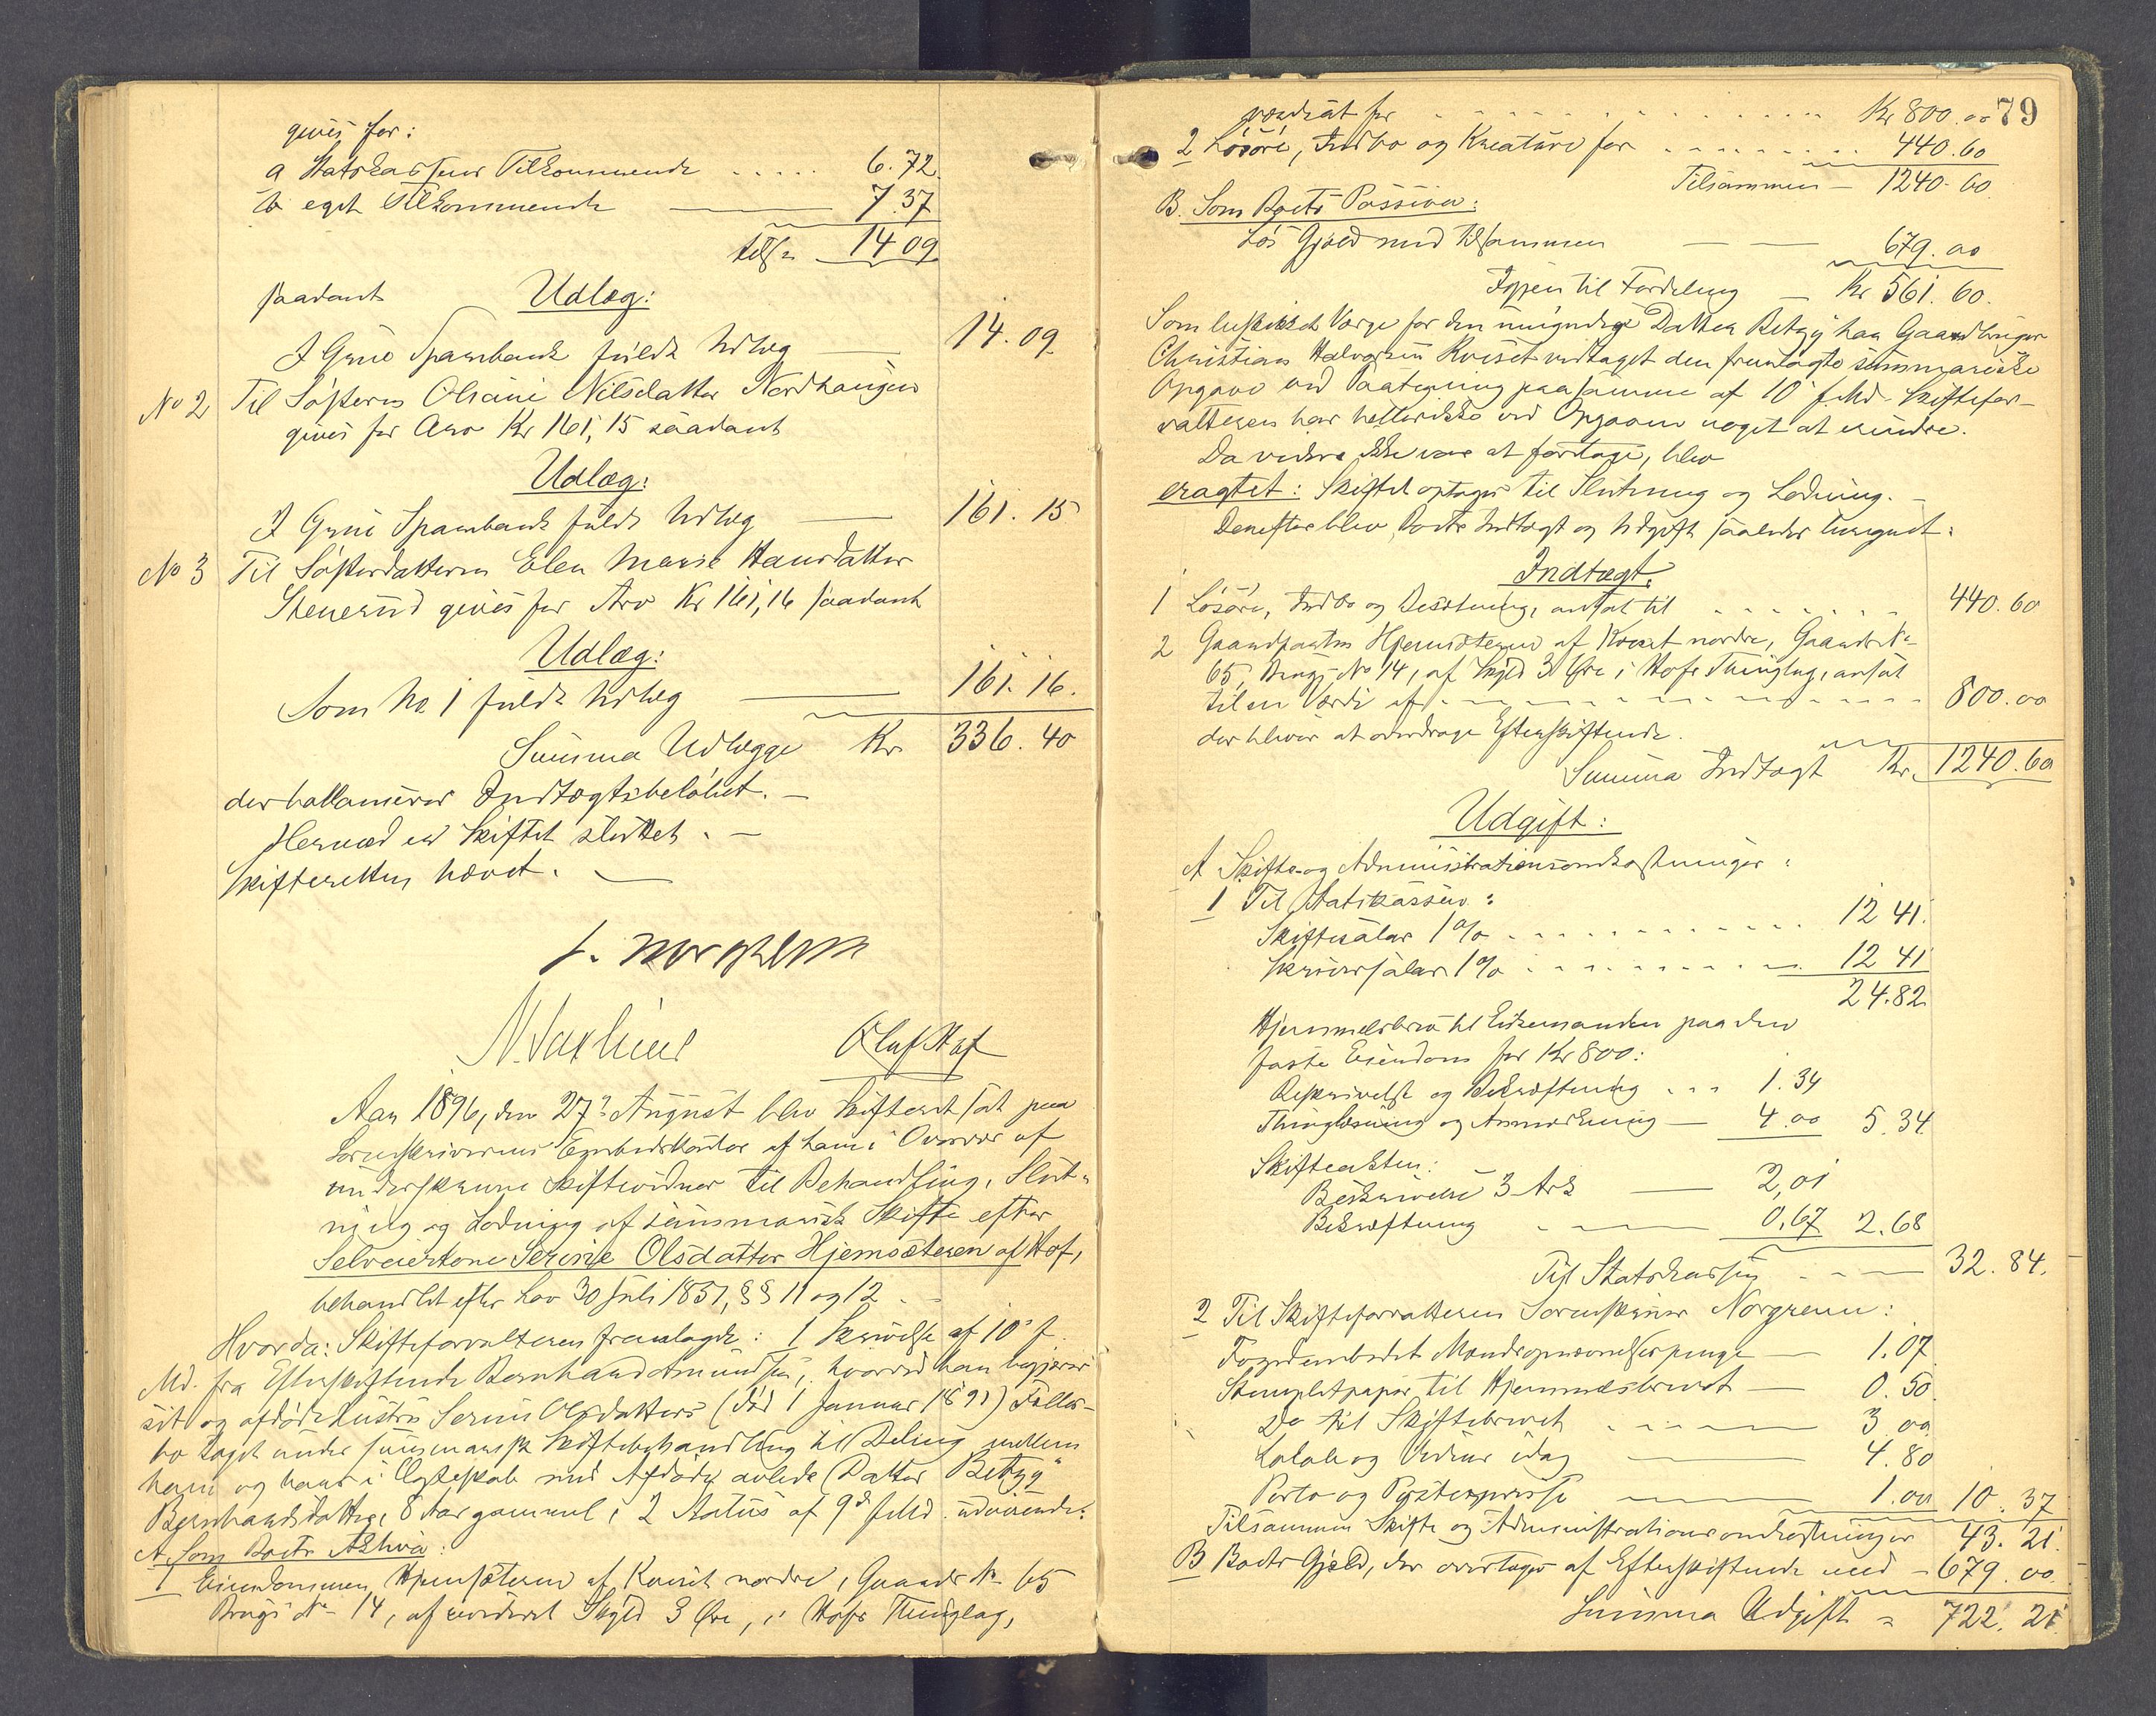 gives for:
a Statskassens Tilkommende ..... 6.72
b eget Tilkommende — 7.37
tils. 14 09
saadant Udlæg:
I Grue Sparebank fuldt Udlæg — 14.09
No 2 Til Søsteren Oleane Nilsdatter Nordhaugen
gives for Arv Kr 161,15 saadant
Udlæg:
I Grue Sparebank fuldt Udlæg — 161.15
No 3 Til Søsterdatteren Elen Marie Hansdatter
Stenerud gives for Arv Kr 161,16 saadant
Udlæg:
Som No 1 fuldt Udlæg — 161.16.
Summa Udlægge Kr 336.40
der ballancerer Indtægtsbeløbet. —
Hermed er Skiftet sluttet. —
Skifteretten hævet. —
Norgrenn
Olaf Hof
Aar 1896, den 27de August blev Skifteret sat paa
Sorenskriverens Embedskontor af ham i Overvær af
underskrevne Skiftevidner til Behandling, Slut-
ning og Lodning af summarisk Skifte efter
Selveierkone Serine Olsdatter Hjemsæteren af Hof,
behandlet efter Lov 30 Juli 1851, §§ 11 og 12. —
Hvorda: Skifteforvalteren fremlagde: 1 Skrivelse af 10' f.
Md. fra Efterskiftende Bernhard Amundsen, hvorved han begjærer
sit og afdøde Hustru Serine Olsdatters (død 1 Januar 1891) Fælles-
bo taget under summarisk Skiftebehandling til Deling mellem
ham og hans i Ægteskab med Afdøde avlede Datter "Betzy"
Bernhardsdatter, 8 Aar gammel, 2 Status af 9de f. Md. udvisende:
A. Som Boets Aktiva:
1 Eiendommen Hjemsæteren af Kvæset nordre, Gaards No 65
Brugs No 14, af revideret Skyld 3 Øre, i Hofs Thinglag,
79
værdsat for ..... Kr 800.00
2 Løsøre, Indbo og Kreature for ..... 440.60
Tilsammen — 1240.60
B. Som Boets Passiva:
Løs Gjæld med tilsammen — — 679.00
Igjen til Fordeling — Kr 561.60.
Som beskikket Værge for den umyndige Datter Betzy har Gaardbruger
Christian Halvorsen Kvæset vedtaget den fremlagte summariske
Opgave ved Paategning paa samme af 10' f. Md. Skiftefor-
valteren har hellerikke ved Opgaven noget at erindre.
Da videre ikke var at foretage, blev
eragtet: Skiftet optages til Slutning og Lodning. —
Derefter blev Boets Indtægt og Udgift saaledes beregnet:
Indtægt.
1 Løsøre, Indbo og Besætning, ansat til ..... 440.60
2 Gaardparten Hjemsæteren af Kvæset nordre, Gaards No
65, Brugs No 14, af Skyld 3 Øre i Hofs Thinglag, ansat
til en Værdi af ..... 800.00
der bliver at overdrage Efterskiftende.
Summa Indtægt Kr. 1240.60
Udgift:
A Skifte- og Administrationsomkostninger:
1 Til Statskassen:
Skiftesalær 1% ..... 12 41.
Skriversalær 1% ..... 12 41
24.82
Hjemmelsbrev til Enkemanden paa den
faste Eiendom for Kr 800:
Beskrivelse og Bekræftning ... 1.34
Thinglæsning og Anmærkning — 4.00 5.34
Skifteakten:
Beskrivelse 3 Ark — 2,01
Bekræftning — 0.67 2.68
Til Statskassen — 32.84.
2 Til Skifteforvalteren Sorenskriver Norgrenn:
Fogdembedet Mandsopnævnelsespenge — 1.07
Stemplet papir til Hjemmelsbrevet — 0.50
Do til Skiftebrevet ..... 3 00
Lokale og Vidner idag — 4.80
Porto og Postexpresse — 1.00 10.37
Tilsammen Skifte og Administrationsomkostninger 43.21.
B Boets Gjæld, der overtages af Efterskiftende med — 679.00
Summa Udgift = 722.21.